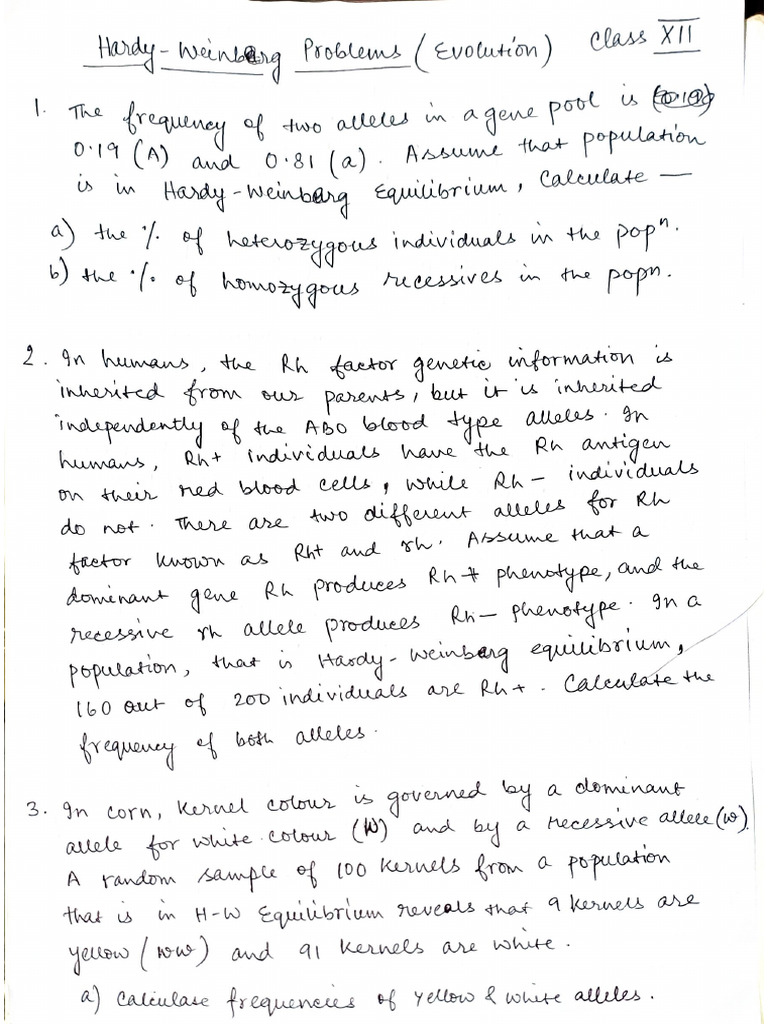 Hardy-Weinberg Problems (Evolution) Class XII
1. The frequency of two alleles in a gene pool is
0.19 (A) and 0.81 (a). Assume that population
is in Hardy-Weinberg Equilibrium, Calculate —
a) the % of heterozygous individuals in the popn.
b) the % of homozygous recessives in the popn.
2. In humans, the Rh factor genetic information is
inherited from our parents, but it is inherited
independently of the ABO blood type alleles. In
humans, Rh+ individuals have the Rh antigen
on their red blood cells, while Rh- individuals
do not. There are two different alleles for Rh
factor known as Rh+ and rh. Assume that a
dominant gene Rh produces Rh+ phenotype, and the
recessive rh allele produces Rh- phenotype. In a
population, that is Hardy-Weinberg equilibrium,
160 out of 200 individuals are Rh+. Calculate the
frequency of both alleles.
3. In corn, kernel colour is governed by a dominant
allele for white colour (W) and by a recessive allele (w).
A random sample of 100 kernels from a population
that is in H-W Equilibrium reveals that 9 kernels are
yellow (ww) and 91 kernels are white.
a) Calculate frequencies of yellow & white alleles.